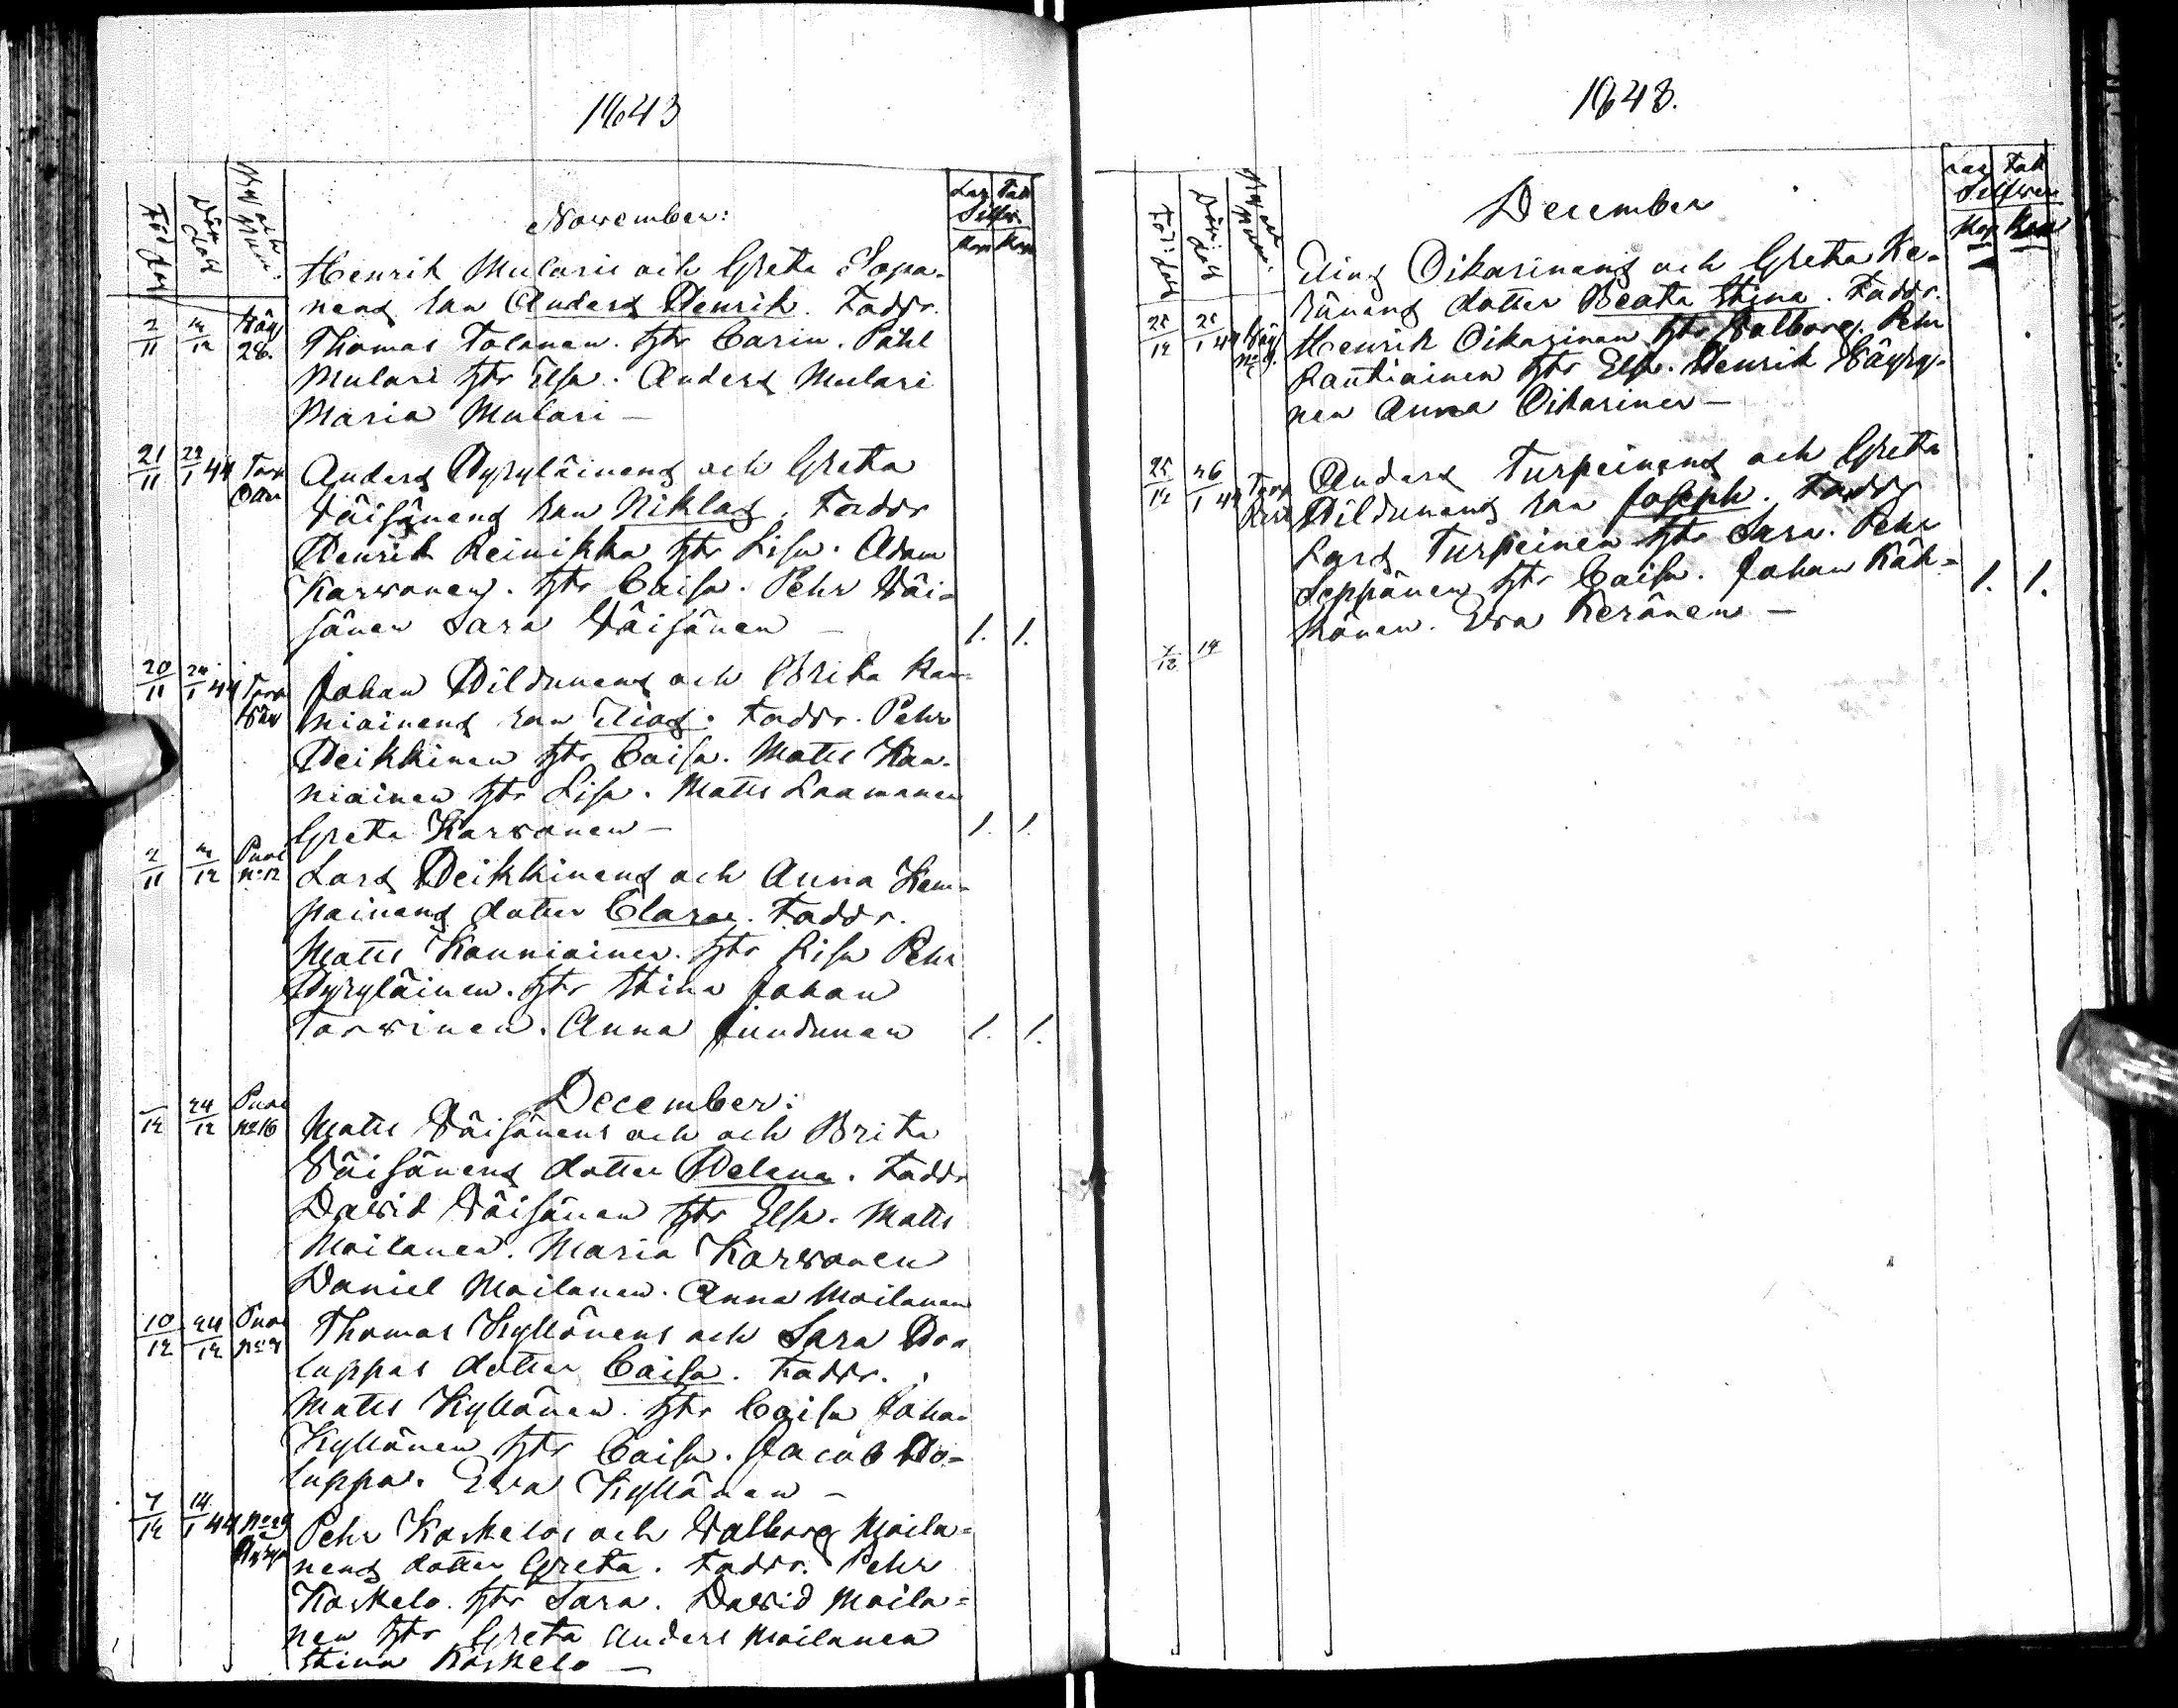 1843
Föd: dag
Döp: dag
By och Num:
Lag Fatt
Silfver
Kop Kop
November:
Henrik Mularis och Greta Sopa-
nens son Anders Henrik. Faddr.
2/11 12 Wäy 28. Thomas Tolonen. hstr Carin. Påhl
Mulari hstr Elsa. Anders Mulari
Maria Mulari —
21/11 29/1 44 Anders Hyryläinens och Greta
Väisänens son Niklas. Faddr
Henrik Reinikka hstr Lisa. Adam
Karvonen. hstr Caisa. Pehr Väi-
sänen Sara Väisänen — 1. 1.
20/11 24/1 44 Johan Hildunens och Brita Kau-
niainens son Elias. Faddr. Pehr
Heikkinen hstr Caisa. Matts Kau-
niainen hstr Lisa. Matts Laamanen
Greta Karvonen — 1. 1.
2/11 12 Puol No 12 Lars Heikkinens och Anna Kem-
painens dotter Clara. Faddr.
Matts Kauniainen. hstr Lisa Pehr
Hyryläinen. hstr Stina Johan
Torvinen. Anna Jundunen 1. 1.
December:
12 24/12 Puol No 16 Matts Väisänens och och Brita
Väisänens dotter Helena. Faddr
David Väisänen hstr Elsa. Matts
Moilanen. Maria Karvonen
Daniel Moilanen. Anna Moilanen
10/12 24/12 Puol Thomas Kyllönens och Sara Ho-
luppas dotter Caisa. Faddr.
Matts Kyllönen. hstr Caisa Johan
Kyllönen hstr Caisa. Jacob Ho-
luppa. Eva Kyllönen —
7/12 14/1 44 Pehr Koskelos och Valborg Moila-
nens dotter Greta. Faddr. Pehr
Koskelo. hstr Sara. David Moila-
nen hstr Greta Anders Moilanen
Stina Koskelo —
1843.
Föd: dag
Döp: dag
By och Num:
Lag Fatt
Silfver
Kop Kop
December
Elias Oikarinens och Greta Ke-
ränens dotter Beata Stina. Faddr.
25/12 25/1 44 Henrik Oikarinen hstr Valborg. Pehr
Rautiainen hstr Elsa. Henrik Väyry-
nen Anna Oikarinen —
25/12 26/1 44 Anders Turpeinens och Greta
Hildunens son Joseph. Faddr
Lars Turpeinen hstr Sara. Pehr
Seppänen hstr Caisa. Johan Käh-
könen. Eva Keränen — 1. 1.
7/12 14